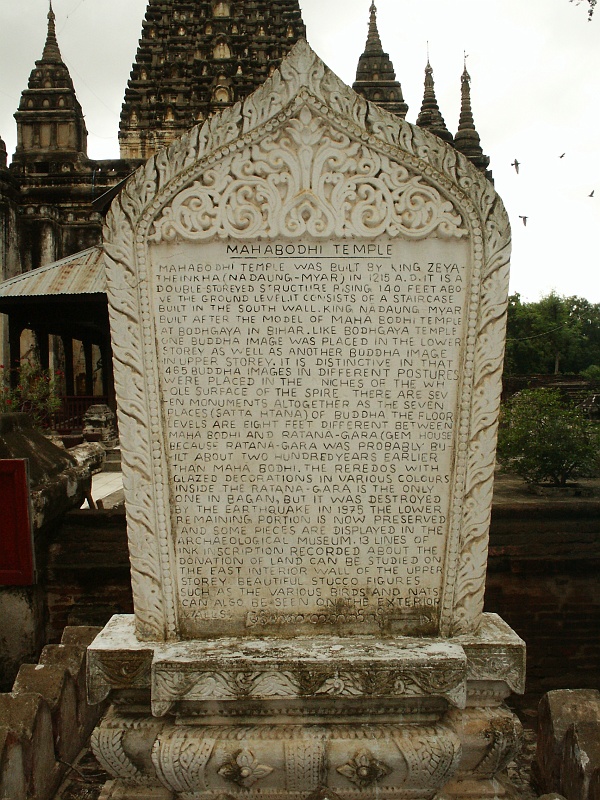 MAHABODHI TEMPLE
MAHABODHI TEMPLE WAS BUILT BY KING ZEYA-
THEINKHA (NADAUNG-MYAR) IN 1215 A.D. IT IS A
DOUBLE-STOREYED STRUCTURE RISING 140 FEET ABO
VE THE GROUND LEVEL. IT CONSISTS OF A STAIRCASE
BUILT IN THE SOUTH WALL. KING NADAUNG MYAR
BUILT AFTER THE MODEL OF MAHA BODHI TEMPLE
AT BODHGAYA IN BIHAR. LIKE BODHGAYA TEMPLE
ONE BUDDHA IMAGE WAS PLACED IN THE LOWER
STOREY AS WELL AS ANOTHER BUDDHA IMAGE
IN UPPER STOREY. IT IS DISTINCTIVE IN THAT
465 BUDDHA IMAGES IN DIFFERENT POSTURES
WERE PLACED IN THE NICHES OF THE WH
OLE SURFACE OF THE SPIRE THERE ARE SEV
EN MONUMENTS ALTOGETHER AS THE SEVEN
PLACES (SATTA HTANA) OF BUDDHA THE FLOOR
LEVELS ARE EIGHT FEET DIFFERENT BETWEEN
MAHA BODHI AND RATANA-GARA (GEM HOUSE
BECAUSE RATANA-GARA WAS PROBABLY BU
ILT ABOUT TWO HUNDRED YEARS EARLIER
THAN MAHA BODHI. THE REREDOS WITH
GLAZED DECORATIONS IN VARIOUS COLOURS
INSIDE THE RATANA-GARA IS THE ONLY
ONE IN BAGAN, BUT IT WAS DESTROYED
BY THE EARTHQUAKE IN 1975 THE LOWER
REMAINING PORTION IS NOW PRESERVED
AND SOME PIECES ARE DISPLAYED IN THE
ARCHAEOLOGICAL MUSEUM. 13 LINES OF
INK INSCRIPTION RECORDED ABOUT THE
DONATION OF LAND CAN BE STUDIED ON
THE EAST INTERIOR WALL OF THE UPPER
STOREY BEAUTIFUL STUCCO FIGURES
SUCH AS THE VARIOUS BIRDS AND NATS
CAN ALSO BE SEEN ON THE EXTERIOR
WALLS.